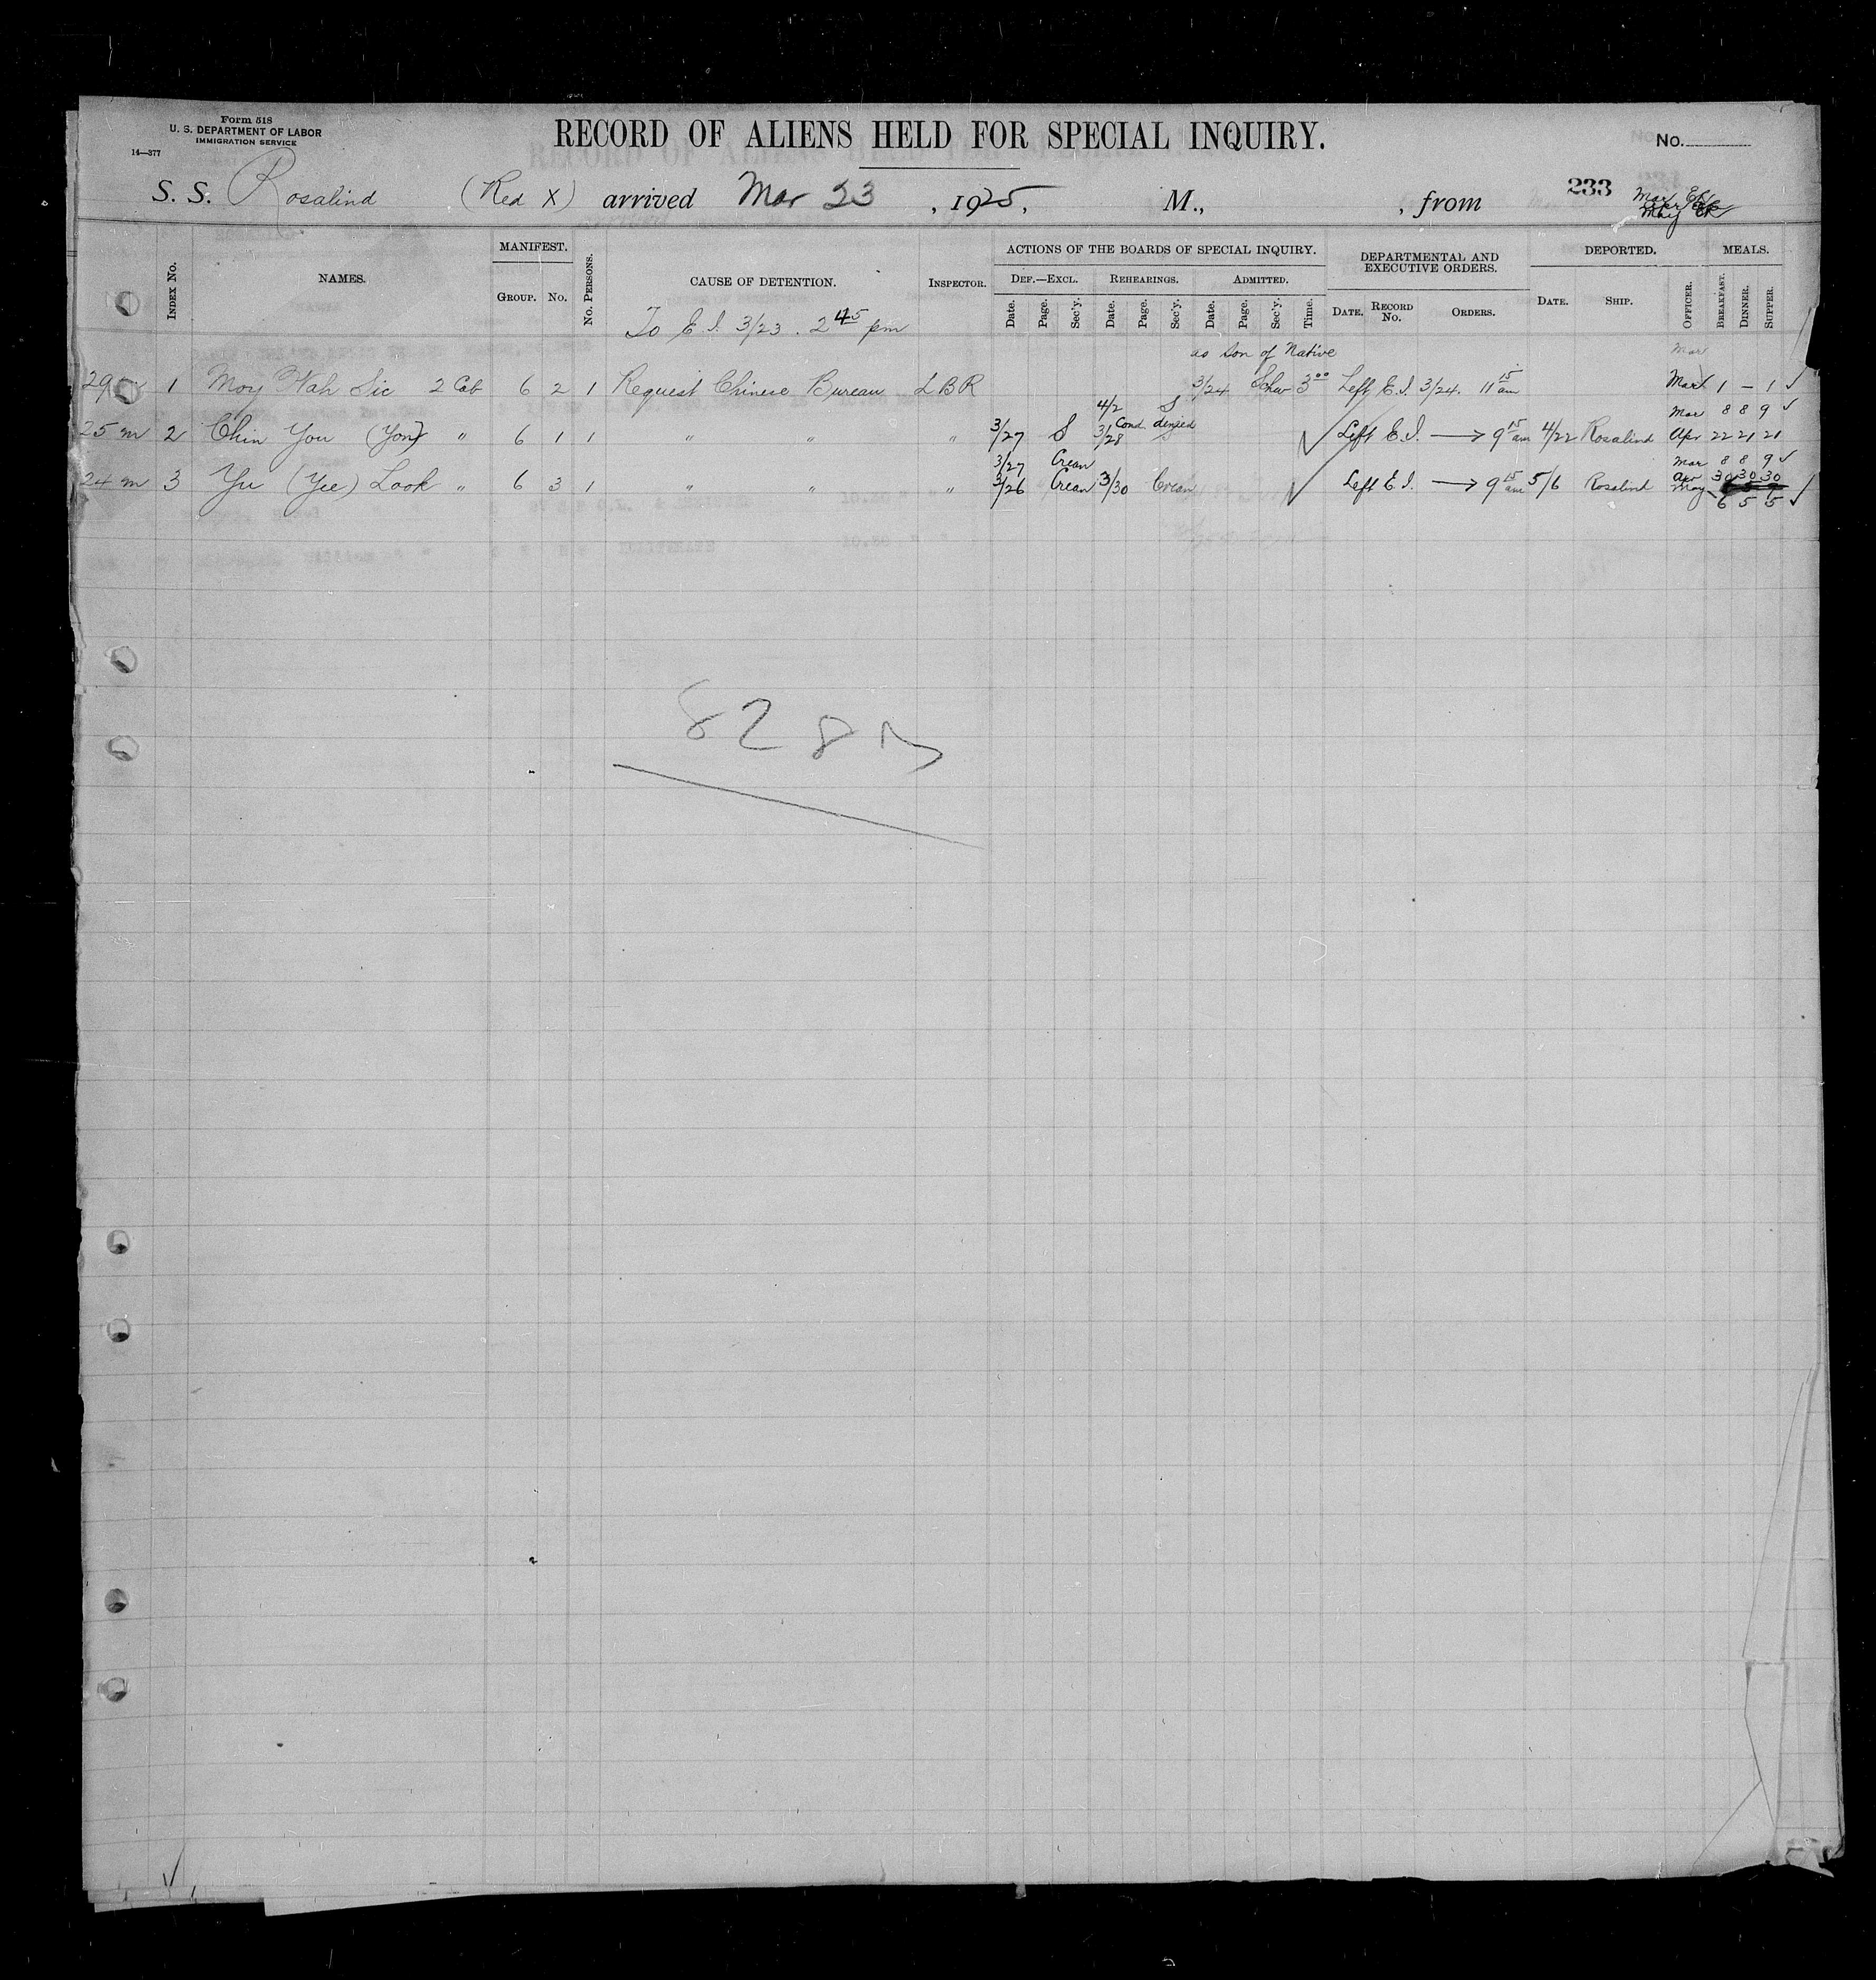 Form 518
U. S. DEPARTMENT OF LABOR
IMMIGRATION SERVICE
14—377
RECORD OF ALIENS HELD FOR SPECIAL INQUIRY.
No.
S. S. Rosalind (Red X) arrived Mar 23, 1925, M., , from
233
MANIFEST.
ACTIONS OF THE BOARDS OF SPECIAL INQUIRY.
DEPARTMENTAL AND EXECUTIVE ORDERS.
DEPORTED.
MEALS.
INDEX No. NAMES. GROUP. No. No. PERSONS. CAUSE OF DETENTION. INSPECTOR. DEF.—EXCL. REHEARINGS. ADMITTED.
Date. Page. Sec'y. Date. Page. Sec'y. Date. Page. Sec'y. Time. DATE. RECORD No. ORDERS. DATE. SHIP. OFFICER. BREAKFAST. DINNER. SUPPER.
To E. I. 3/23 . 2 45 pm
as son of Native
Mar
29 1 Moy Wah Sic 2 Cab 6 2 1 Request Chinese Bureau LBR 3/24 3 00 Left E. I. 3/24. 11 15 am Mar 1 – 1 ✓
4/2 S Mar 8 8 9 ✓
25 m 2 Chin You (Yon) " 6 1 1 " " " 3/27 S 3/28 Cond denied ✓ Left E. I. → 9 15 am 4/22 Rosalind Apr 22 21 21
3/27 Crean Mar 8 8 9 ✓
24 m 3 Yu (Yee) Look " 6 3 1 " " " 3/26 Crean 3/30 Crean ✓ Left E. I. → 9 15 am 5/6 Rosalind Apr 30 30 30
May 6 5 5 ✓